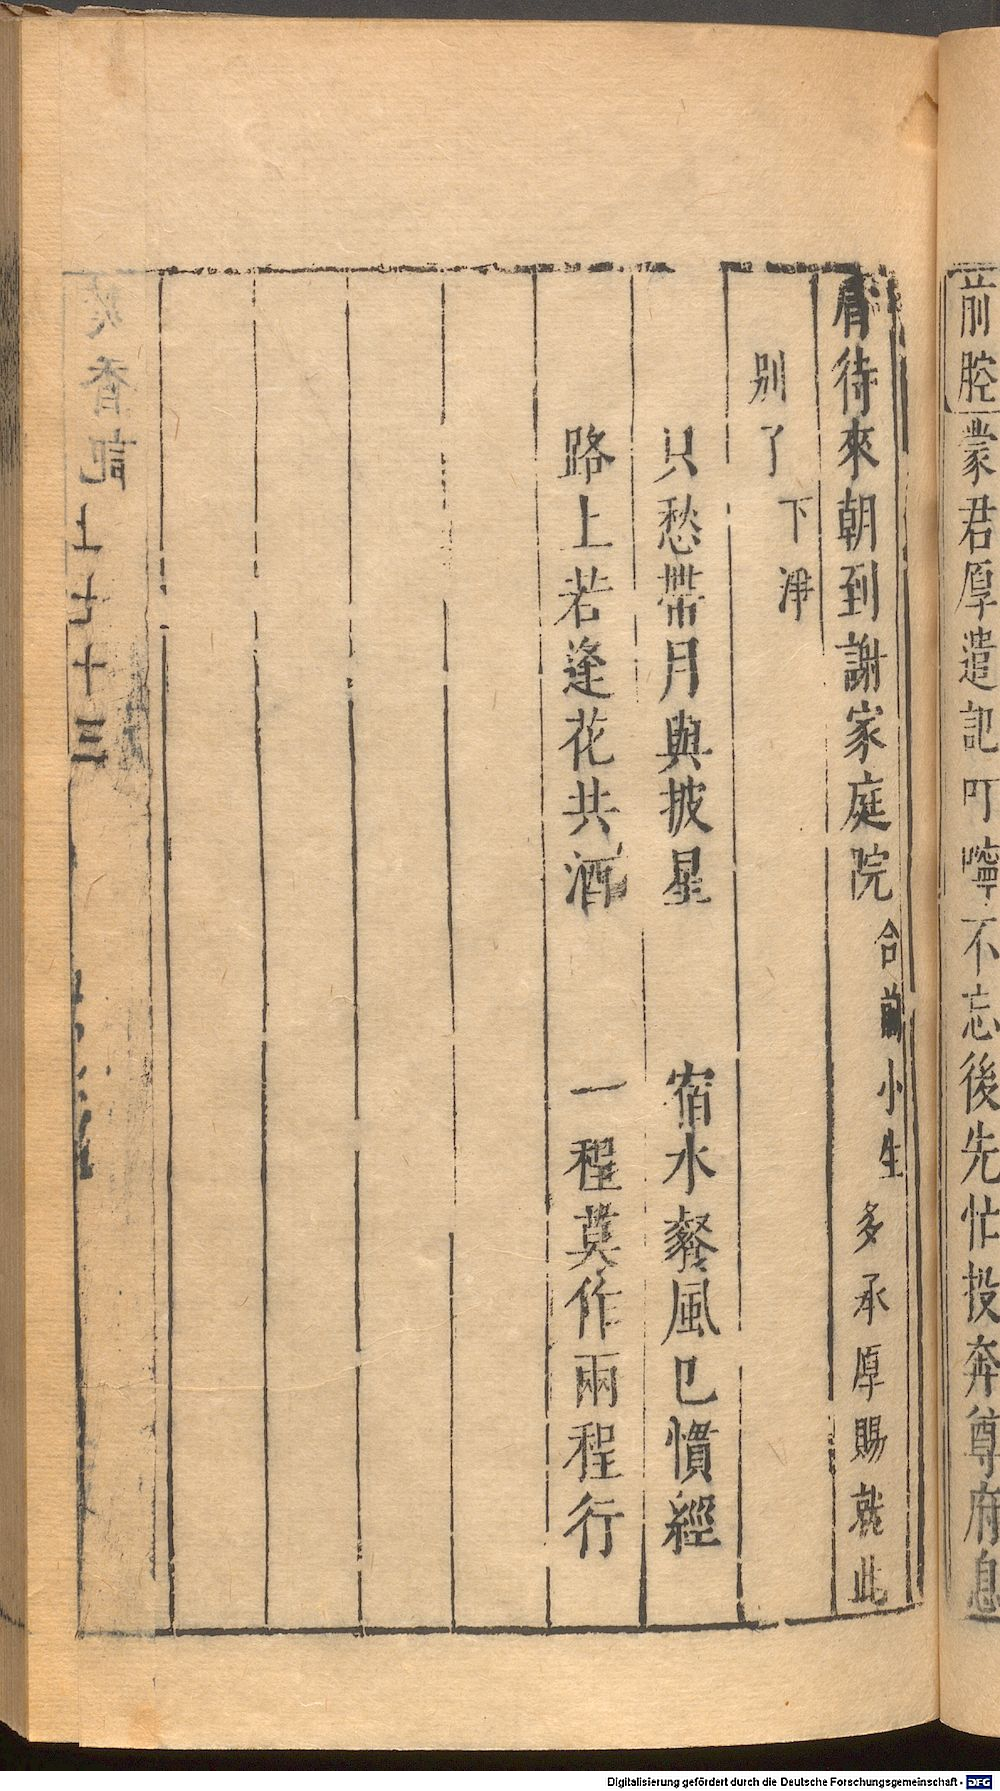 前腔蒙君厚遣記叮嚀不忘後先忙投奔尊府息
肩待來朝到謝家庭院合前小生多承厚賜就此
別了下淨
只愁帶月與披星 宿水餐風已慣經
路上若逢花共酒 一程莫作兩程行
香記上七十三
Digitalisierung gefördert durch die Deutsche Forschungsgemeinschaft - DFG